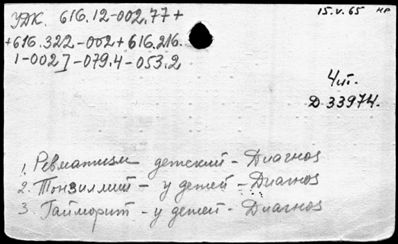 УДК. 616.12-002.77+
+616.322-002+616.216.
1-002]-079.4-053.2
15.V.65 нр
4ит.
Д-33974.
1. Ревматизм детский - Диагноз
2. Тонзиллит - у детей - Диагноз
3. Гайморит - у детей - Диагноз